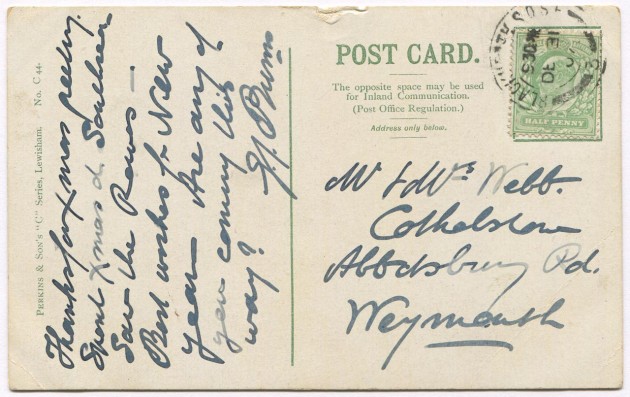 PERKINS & SON'S "C" Series, Lewisham. No. C 44.
Thanks for Xmas
Spent Xmas d. Southsea
Saw the
Best wishes for New
year — Are any of
you coming this
way?
POST CARD.
The opposite space may be used
for Inland Communication.
(Post Office Regulation.)
Address only below.
BLACKHEATH S.O. S.E.
DE 31
HALF PENNY
Mr & Mrs Webb.
Cothelstow
Abbotsbury Rd.
Weymouth